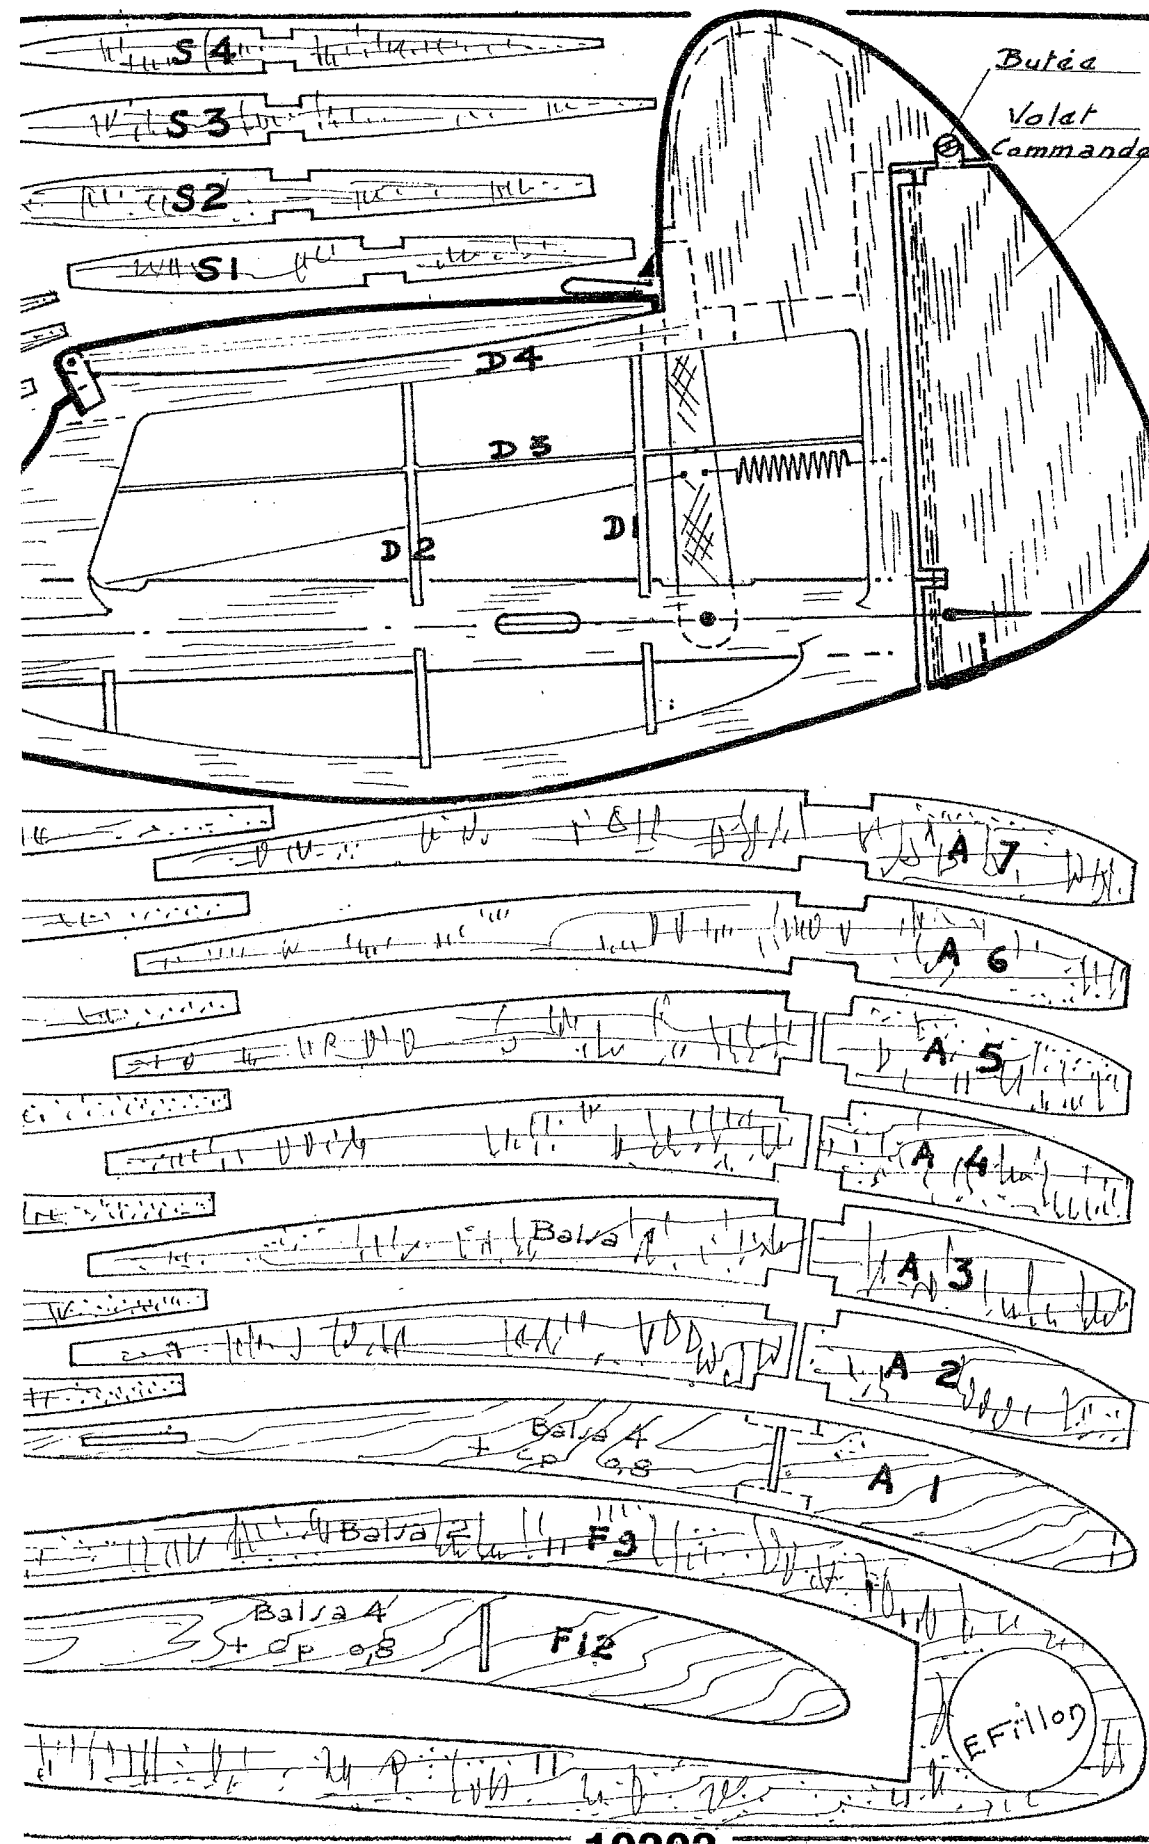 S 4
Butée
S 3
Volet
Commande
S2
S1
D 4
D 3
D 2
D1
A 7
A 6
A 5
A 4
Balsa
A 3
A 2
Balsa 4
+ Cp 0,8
A 1
Balsa 2
F9
Balsa 4
+ Cp 0,8
F12
E Fillon